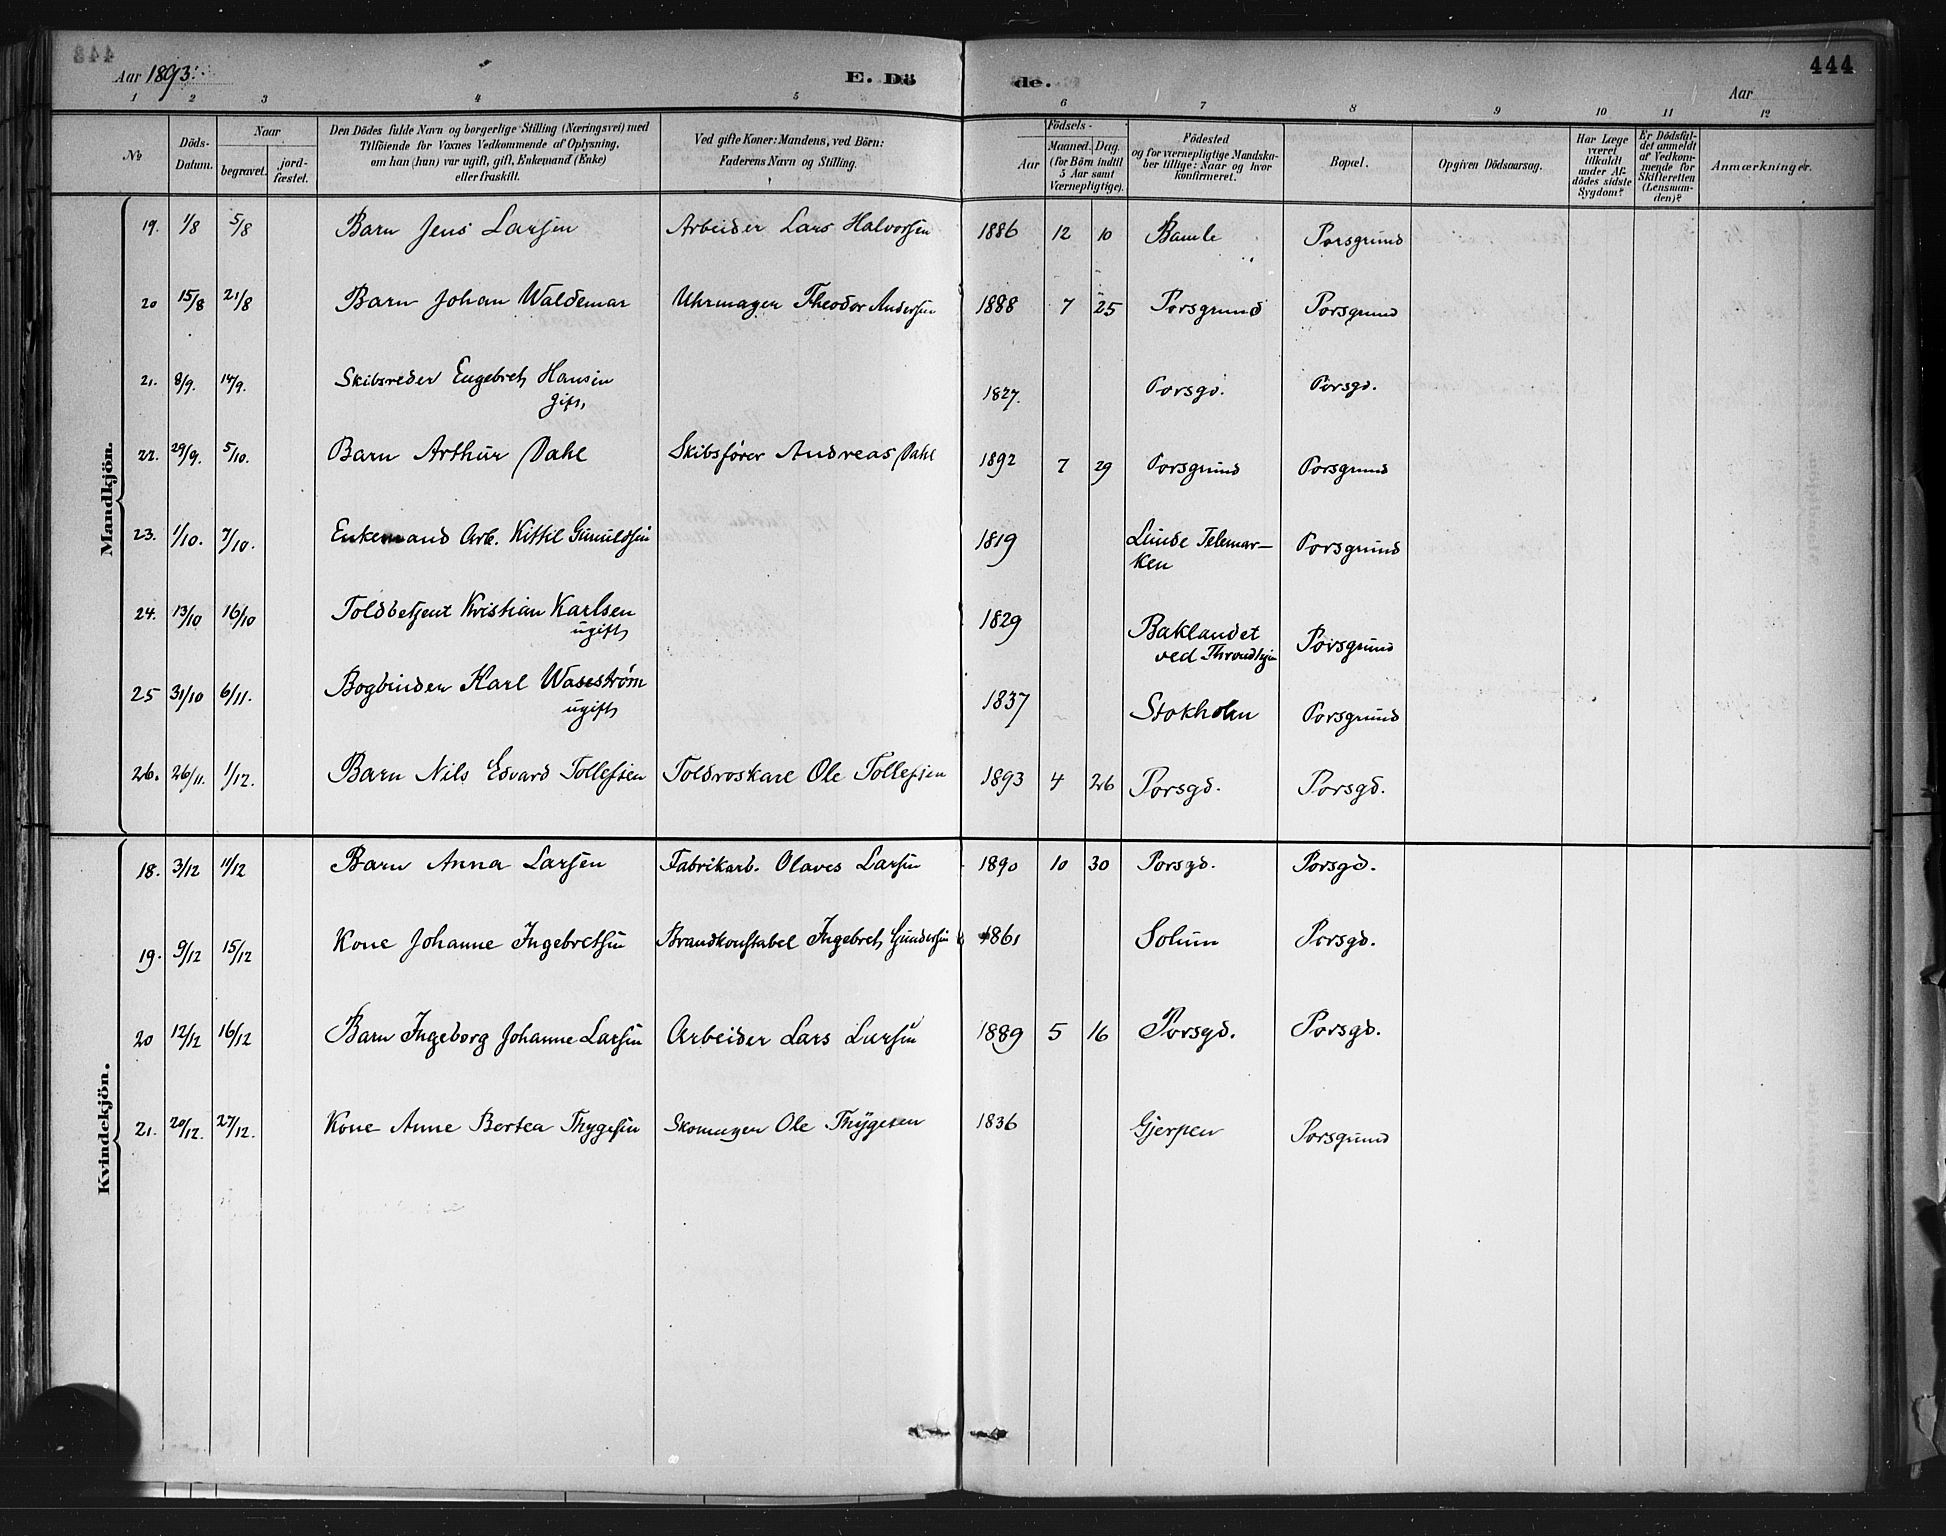 Aar 1893.
E. Dö
de.
444
Aar
1 2 3 4 5 6 7 8 9 10 11 12
№
Döds-Datum.
Naar
begravet.
jord-fæstet.
Den Dödes fulde Navn og borgerlige Stilling (Næringsvei) med
Tilföiende for Voxnes Vedkommende af Oplysning,
om han (hun) var ugift, gift, Enkemand (Enke)
eller fraskilt.
Ved gifte Koner: Mandens, ved Börn:
Faderens Navn og Stilling.
Födsels-
Aar
Maaned. Dag.
(for Börn indtil
5 Aar samt
Værnepligtige).
Födested
og for værnepligtige Mandska-
ber tillige: Naar og hvor
konfirmeret.
Bopæl.
Opgiven Dödsaarsag.
Har Læge
været
tilkaldt
under Af-
dödes sidste
Sygdom?
Er Dödsfal-
det anmeldt
af Vedkom-
mende for
Skifteretten
(Lensman-
den)?
Anmærkninger.
Mandkjön.
19. 1/8 5/8 Barn Jens Larsen Arbeider Lars Halvorsen 1886 12 10 Bamle Porsgrund
20 15/8 21/8 Barn Johan Waldemar Uhrmager Theodor Andersen 1888 7 25 Porsgrund Porsgrund
21. 8/9. 14/9. Skibsreder Engebret Hansen 1827. Porsgd. Porsgd.
gift,
22. 29/9. 5/10. Barn Arthur Dahl Skibsfører Andreas Dahl 1892 7 29 Porsgrund Porsgrund
23. 1/10. 7/10. Enkemand Arb. Kittil Gunuldsen 1819 Lunde Telemar-
ken Porsgrund
24. 13/10 16/10 Toldbetjent Kristian Karlsen 1829 Baklandet
ugift, ved Throndhjem Porsgrund
25 31/10 6/11. Bogbinder Karl Waseström 1837 Stokholm Porsgrund
ugift,
26. 26/11. 1/12. Barn Nils Edvard Tollefsen Toldroskarl Ole Tollefsen 1893 4 26 Porsgd. Porsgd.
Kvindekjön.
18. 3/12 11/12 Barn Anna Larsen Fabrikarb. Olaves Larsen 1890 10 30 Porsgd. Porsgd.
19. 9/12 15/12 Kone Johanne Ingebretsen Brandkonstabel Ingebret Gundersen 1861 Solum Porsgd.
20 12/12 16/12 Barn Ingeborg Johanne Larsen Arbeider Lars Larsen 1889 5 16 Porsgd. Porsgd.
21. 20/12. 27/12. Kone Anne Bertea Thygesen Skomager Ole Thygesen 1836 Gjerpen Porsgrund